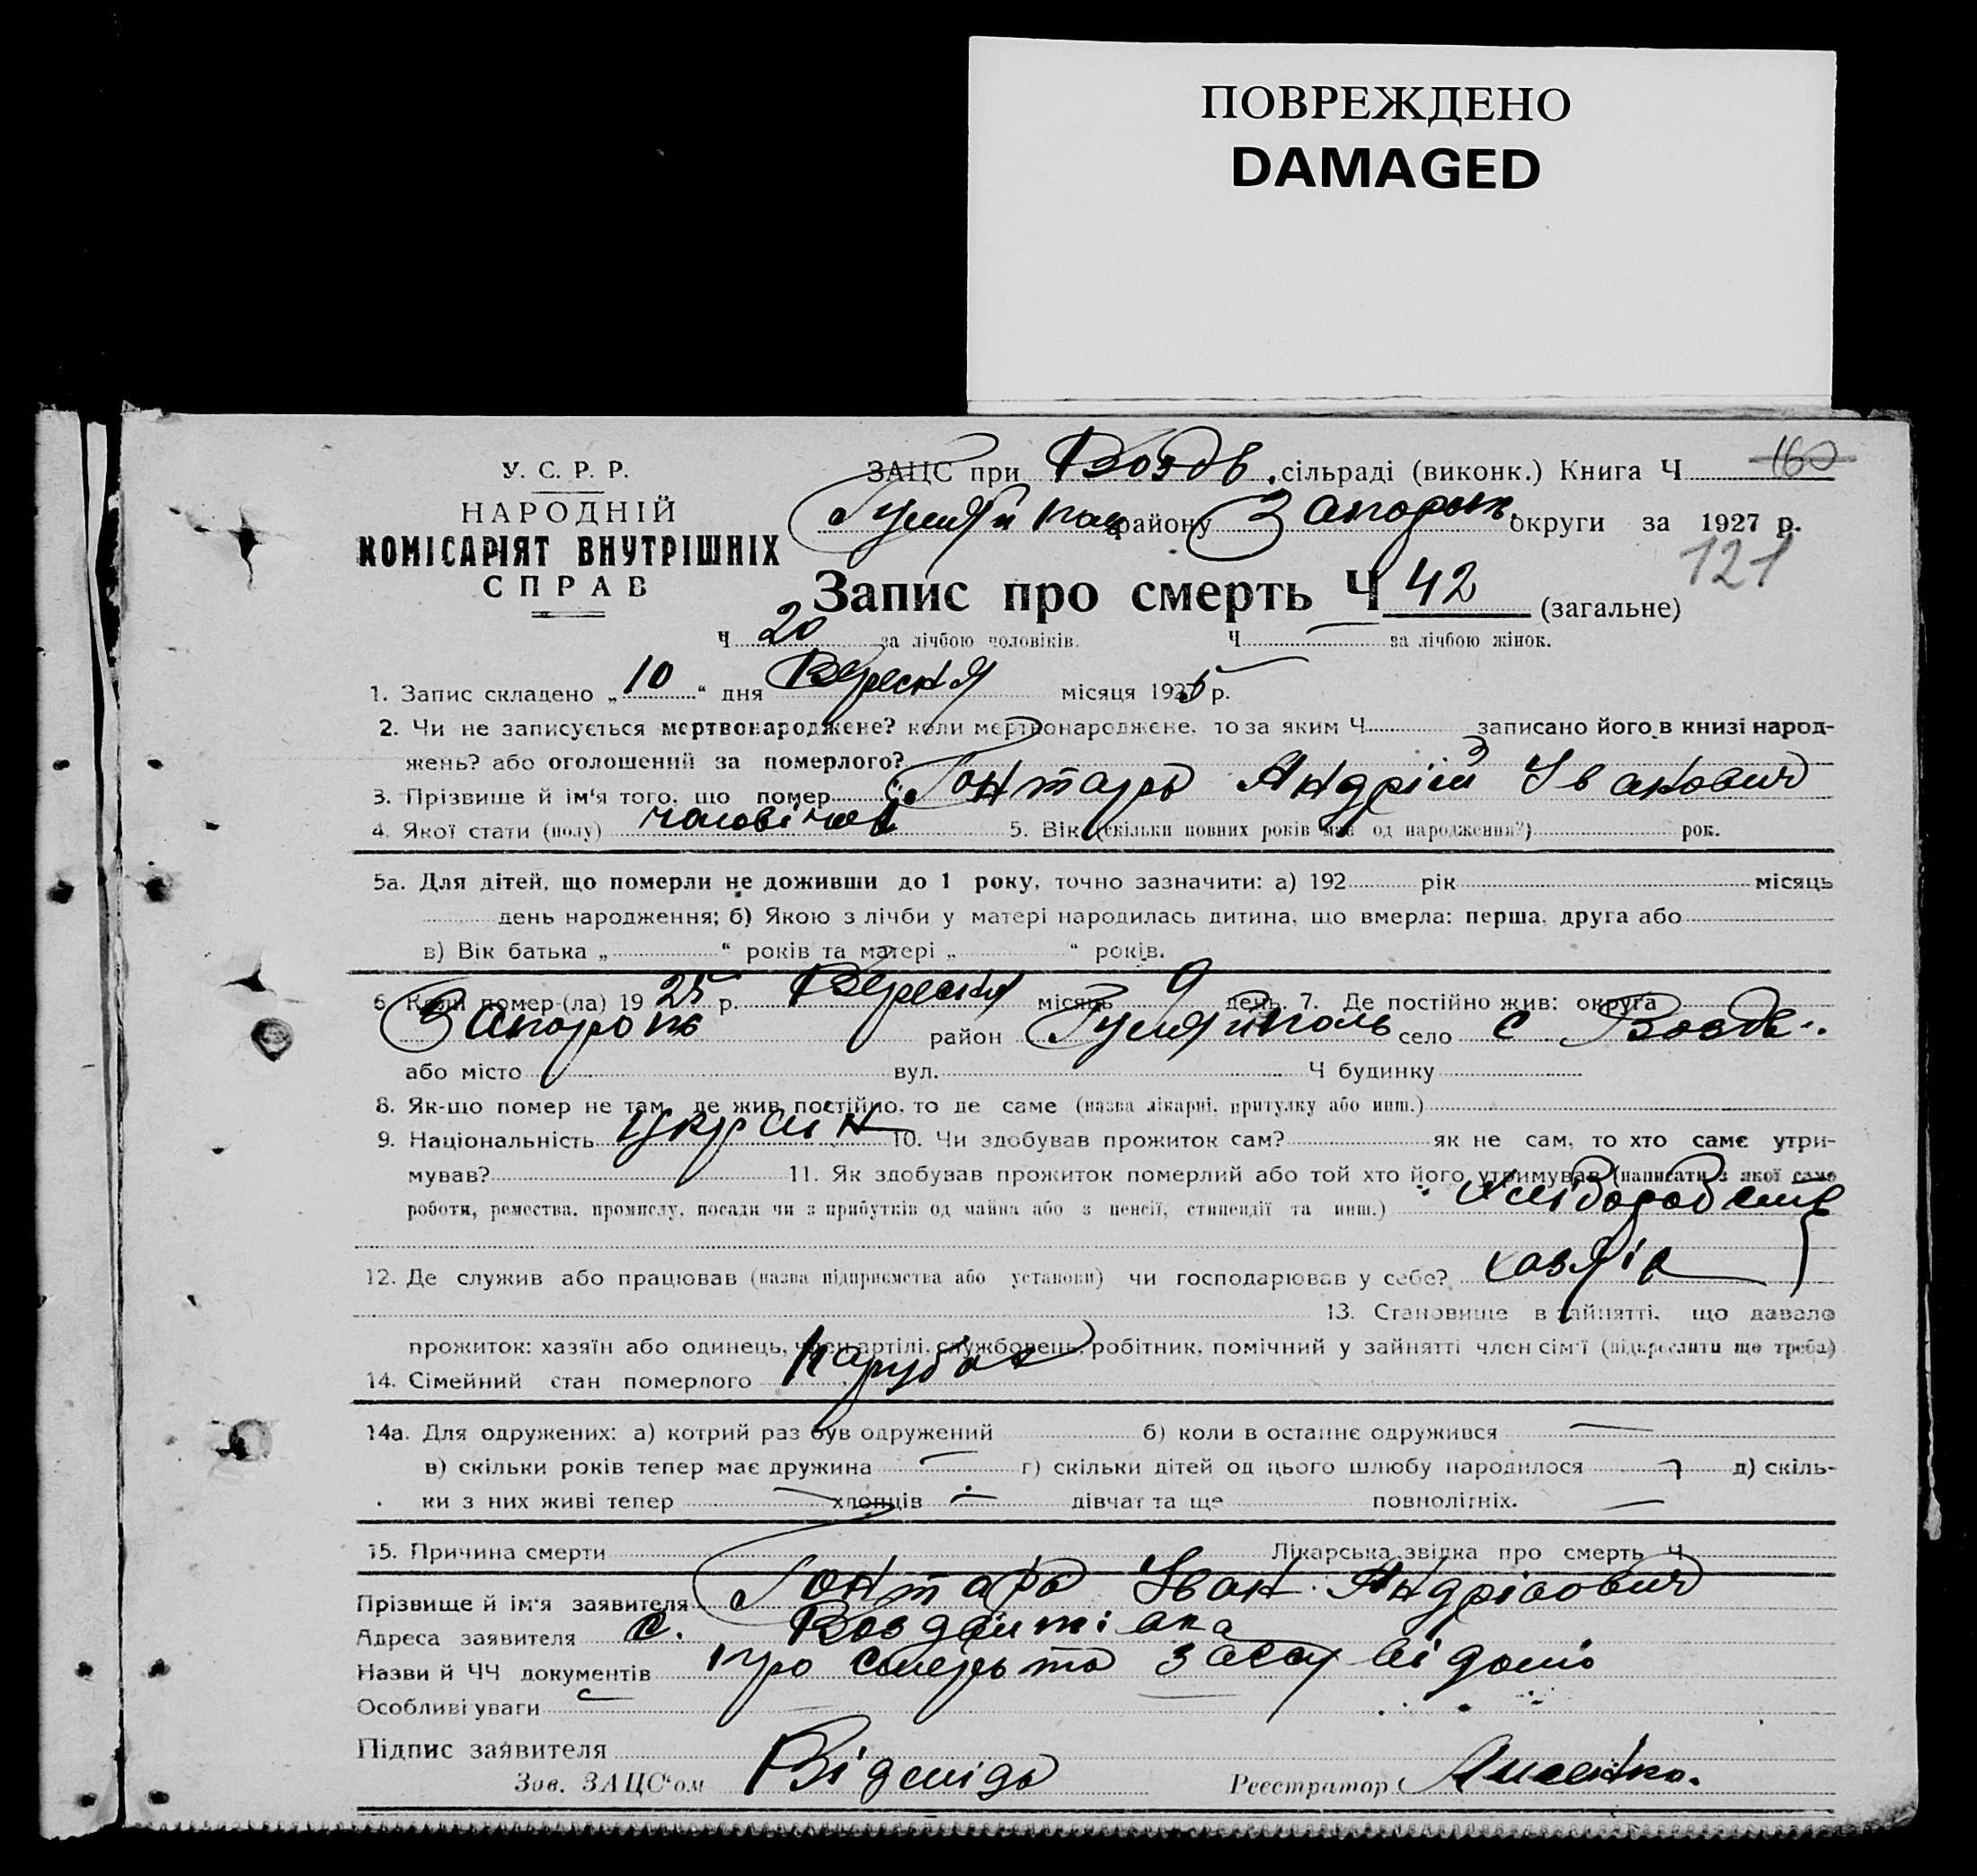 ПОВРЕЖДЕНО
DAMAGED
У. С. Р. Р.
НАРОДНІЙ
КОМІСАРІЯТ ВНУТРІШНІХ
СПРАВ
ЗАЦС при Воздв. сільраді (виконк.) Книга Ч 160
Гуляйпол району Запорож. округи за 1927 р.
121
Запис про смерть Ч 42 (загальне)
Ч 20 за лічбою чоловіків. Ч — за лічбою жінок.
1. Запис складено „10“ дня Вересня місяця 1925 р.
2. Чи не записується мертвонароджене? коли мертвонароджене, то за яким Ч записано його в книзі народ-
жень? або оголошений за померлого?
3. Прізвище й ім'я того, що помер Гонтарь Андрій Іванович
4. Якої стати (полу) 5. Вік (скільки повних років має од народження?) рок.
5а. Для дітей, що померли не доживши до 1 року, точно зазначити: а) 192 рік місяць
день народження; б) Якою з лічби у матері народилась дитина, що вмерла: перша, друга або
в) Вік батька „ “ років та матері „ “ років.
6. Коли помер (ла) 1925 р. Вересня місяць 9 день. 7. Де постійно жив: округа
район Гуляйполь село с Воздв.
або місто вул. Ч будинку
8. Як-що помер не там, де жив постійно, то де саме (назва лікарні, притулку або инш.)
9. Національність Україн 10. Чи здобував прожиток сам? як не сам, то хто саме утри-
мував? 11. Як здобував прожиток померлий або той хто його утримував (написати з якої саме
роботи, ремества, промислу, посади чи з прибутків од майна або з пенсії, стипендії та инш.)
12. Де служив або працював (назва підприємства або установи) чи господарював у себе? хазяін
13. Становище в зайнятті, що давало
прожиток: хазяїн або одинець, член артілі, службовець, робітник, помічний у зайнятті член сім'ї (підкреслити що треба)
14. Сімейний стан померлого Парубок
14а. Для одружених: а) котрий раз був одружений б) коли в останнє одружився —
в) скільки років тепер має дружина — г) скільки дітей од цього шлюбу народилося д) скіль-
ки з них живі тепер — хлопців — дівчат та ще повнолітніх. —
15. Причина смерти Лікарська звідка про смерть Ч
Прізвище й ім'я заявителя Гонтарь Іван Андріович
Адреса заявителя с.
Назви й ЧЧ документів про смерть
Особливі уваги
Підпис заявителя
Зав. ЗАЦС'ом
Реєстратор